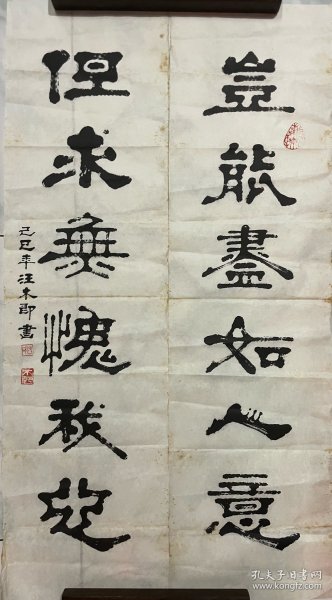 豈能盡如人意
但求無愧我心
己巳年汪木即書
孔夫子旧书网
www.kongfz.com